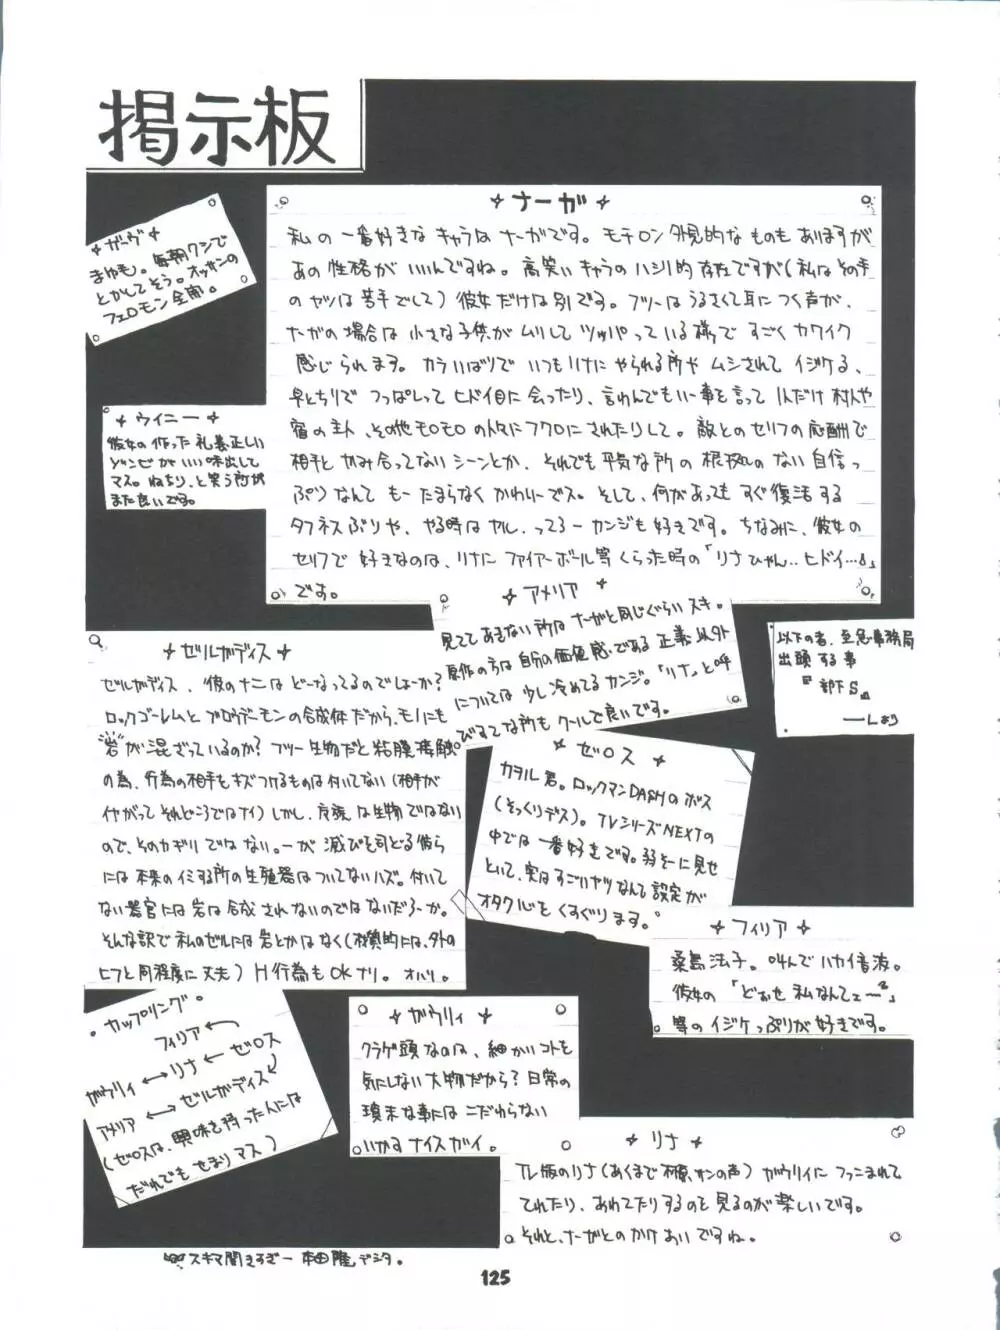 掲示板
✦ ナーガ ✦
私の一番好きなキャラは ナーガです。モチロン 外見的な ものも ありますが
あの 性格が いいんですね。高笑い キャラの ハシリ的 存在ですが(私は その手
のヤツは 苦手 でして) 彼女だけは 別です。フツーは うるさくて 耳に つく声が、
ナーガの 場合は 小さな 子供が ムリして ツッパっている 様で すごく カワイク
感じられます。カラいばりで いつも リナに やられる所や ムシされて イジケる、
早とちりで つっぱしって ヒドイ目に 会ったり、言わんでもいー事を言って 1人だけ 村人や
宿の主人、その他モロモロ の人々に フクロに されたりして。敵との セリフの 応酬で
相手と かみ合ってない シーンとか、それでも 平気な 所の 根拠の ない 自信っ
ぷりなんて もー たまらなく かわいーでス。そして、何があっても すぐ復活 する
タフネスぶりや、やる時は ヤル、ってろー カンジも 好きです。ちなみに、彼女の
セリフで 好きなのは、リナに ファイアーボール等 くらった時の「リナひゃん‥ヒドイ…」
です。
✦ ガーヴ ✦
まゆも。毎朝クシで
とかしてそう。オッサンの
フェロモン全開。
✦ ウィニー ✦
彼女の 作った 礼儀正しい
ゾンビが いい味出して
マス。ねちり、と笑う所が
また良いです。
✦ アメリア ✦
見てて あきない 所は ナーガと同じぐらい スキ。
原作の方は 自分の価値感である 正義 以外
については 少し冷めてる カンジ。「リナ」と呼
びすてな所も クールで良いです。
以下の者、至急事務局
出頭する事
『部下S』
――Lより
✦ ゼルガディス ✦
ゼルガディス、彼のナニは どーなってるのでしょーか?
ロックゴーレムと ブロウデーモンの合成体だから、モノにも
岩が混ざっているのか? フツー生物だと 粘膜接触
の為、行為の相手を キズつけるものは 付いてない (相手が
イヤがって それどころではナイ) しかし、魔族 は生物 ではない
ので、そのカギリ ではない。―が 滅びを司どる彼ら
には 本来の イミする所の 生殖器は ついてないハズ。付いて
ない器官には 岩は合成 されないのではないだろーか。
そんな訳で 私のゼルには 岩とかはなく (材質的には、外の
ヒフと同程度に 丈夫) H行為も OKナリ。オハリ。
✦ ゼロス ✦
カヲル君。ロックマンDASHのボス
(そっくりデス)。TVシリーズNEXTの
中では 一番好きです。弱そーに見せ
といて、実は すごいヤツなんて 設定が
オタク心を くすぐります。
✦ フィリア ✦
桑島 法子。叫んで ハカイ音波。
彼女の「どぉせ 私なんてェー」
等の イジケっぷりが 好きです。
。カップリング。
フィリア
ガウリィ ⟷ リナ ← ゼロス
アメリア ⟷ ゼルガディス
(ゼロスは、興味を持った人には
だれでも せまりマス)
✦ ガウリィ ✦
クラゲ頭なのは、細かいコトを
気にしない 大物だから? 日常の
瑣末な事には こだわらない
いかす ナイスガイ。
✦ リナ ✦
TV版のリナ(あくまで 林原サンの声) ガウリィに つっこまれて
てれたり、あわてたりするのを 見るのが楽しいです。
それと、ナーガとの かけあい ですね。
スキマ開きろぎー 本田 隆 デシタ。
125